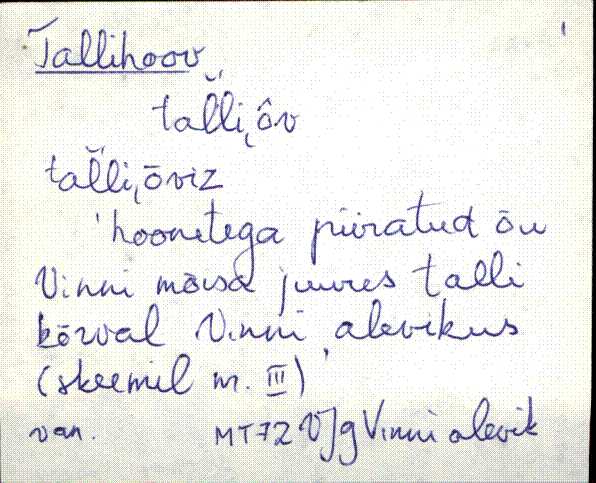 Tallihoov
talli,ôv
talli,õviz
'hoonetega piiratud õu
Vinni mõisa juures talli
kõrval Vinni alevikus
(skeemil nr. III)
van. MT72 VJg Vinni alevik